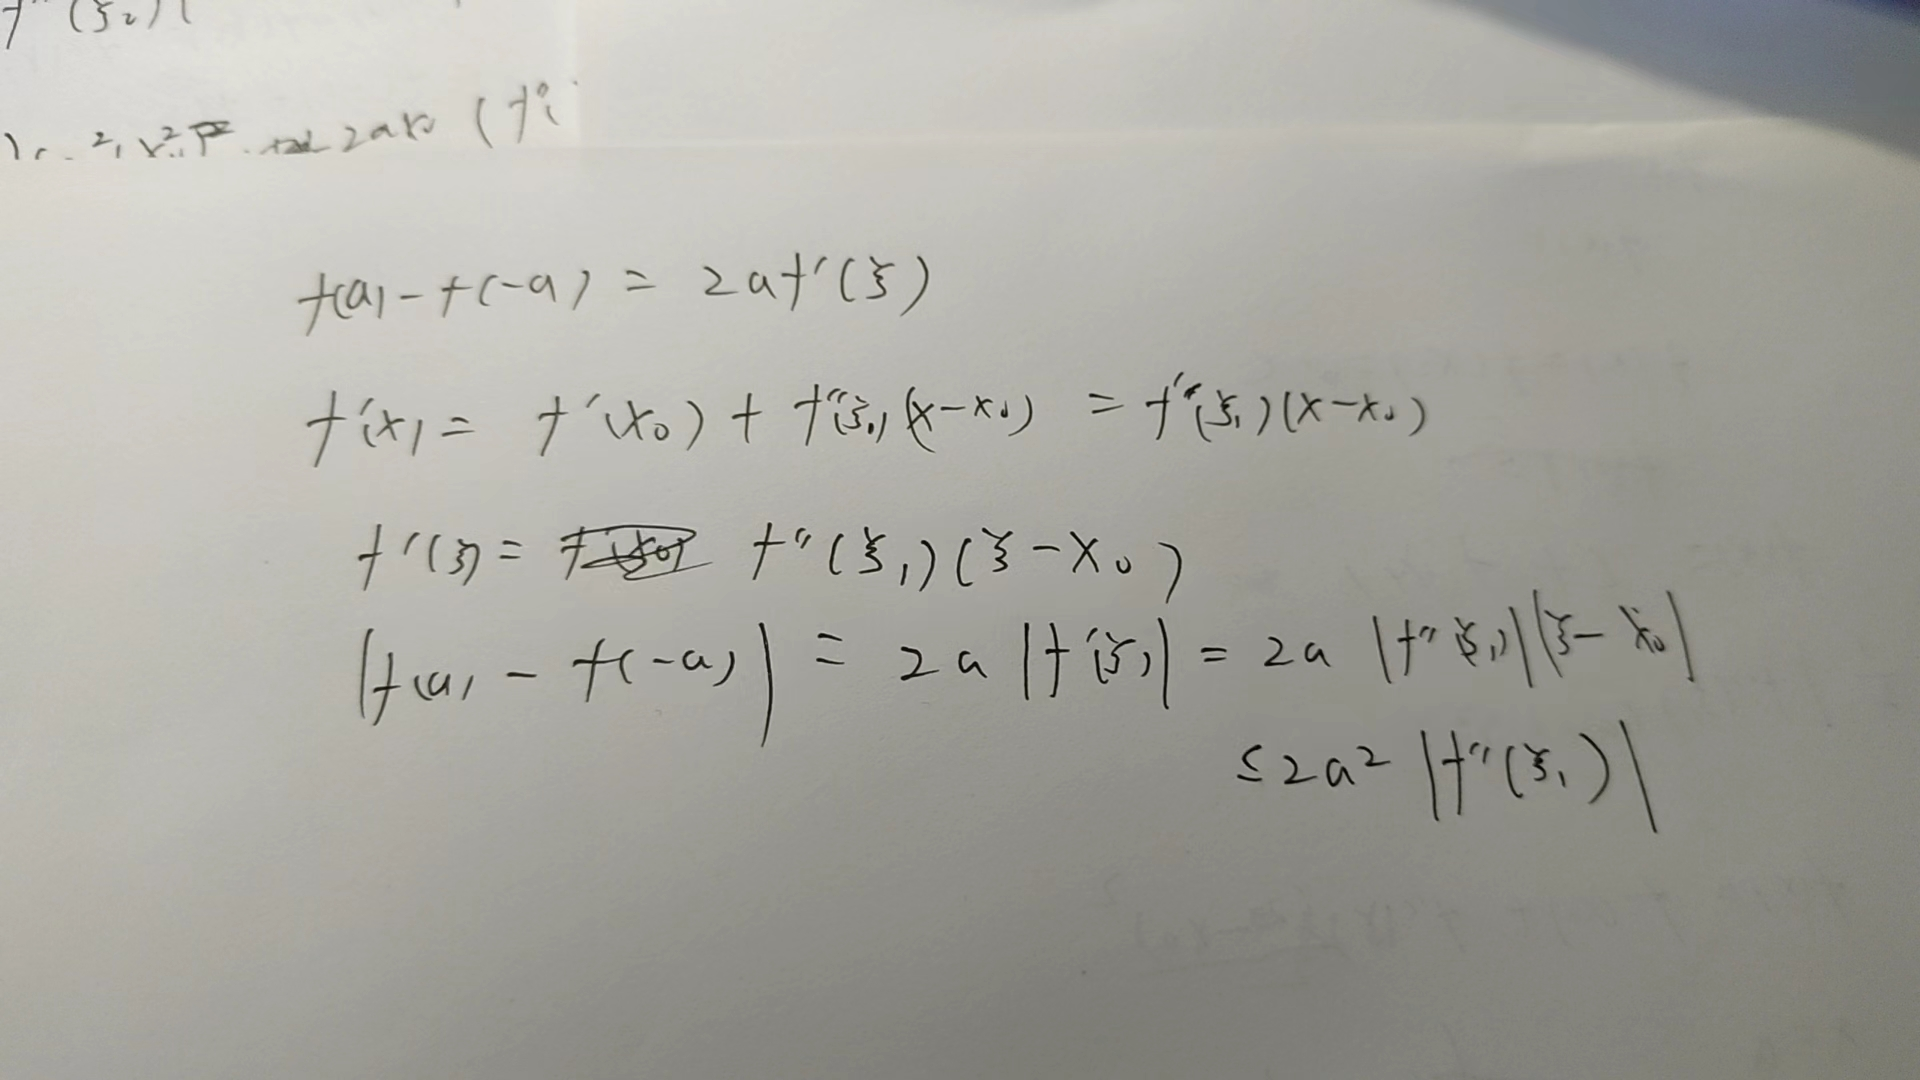 f''(ξ₂)|
2ax₀ (f
f(a) - f(-a) = 2af'(ξ)
f'(x) = f'(x₀) + f''(ξ₁)(x-x₀) = f''(ξ₁)(x-x₀)
f'(ξ) = f''(ξ₁)(ξ-x₀)
|f(a) - f(-a)| = 2a |f'(ξ)| = 2a |f''(ξ₁)||ξ-x₀|
≤ 2a² |f''(ξ₁)|